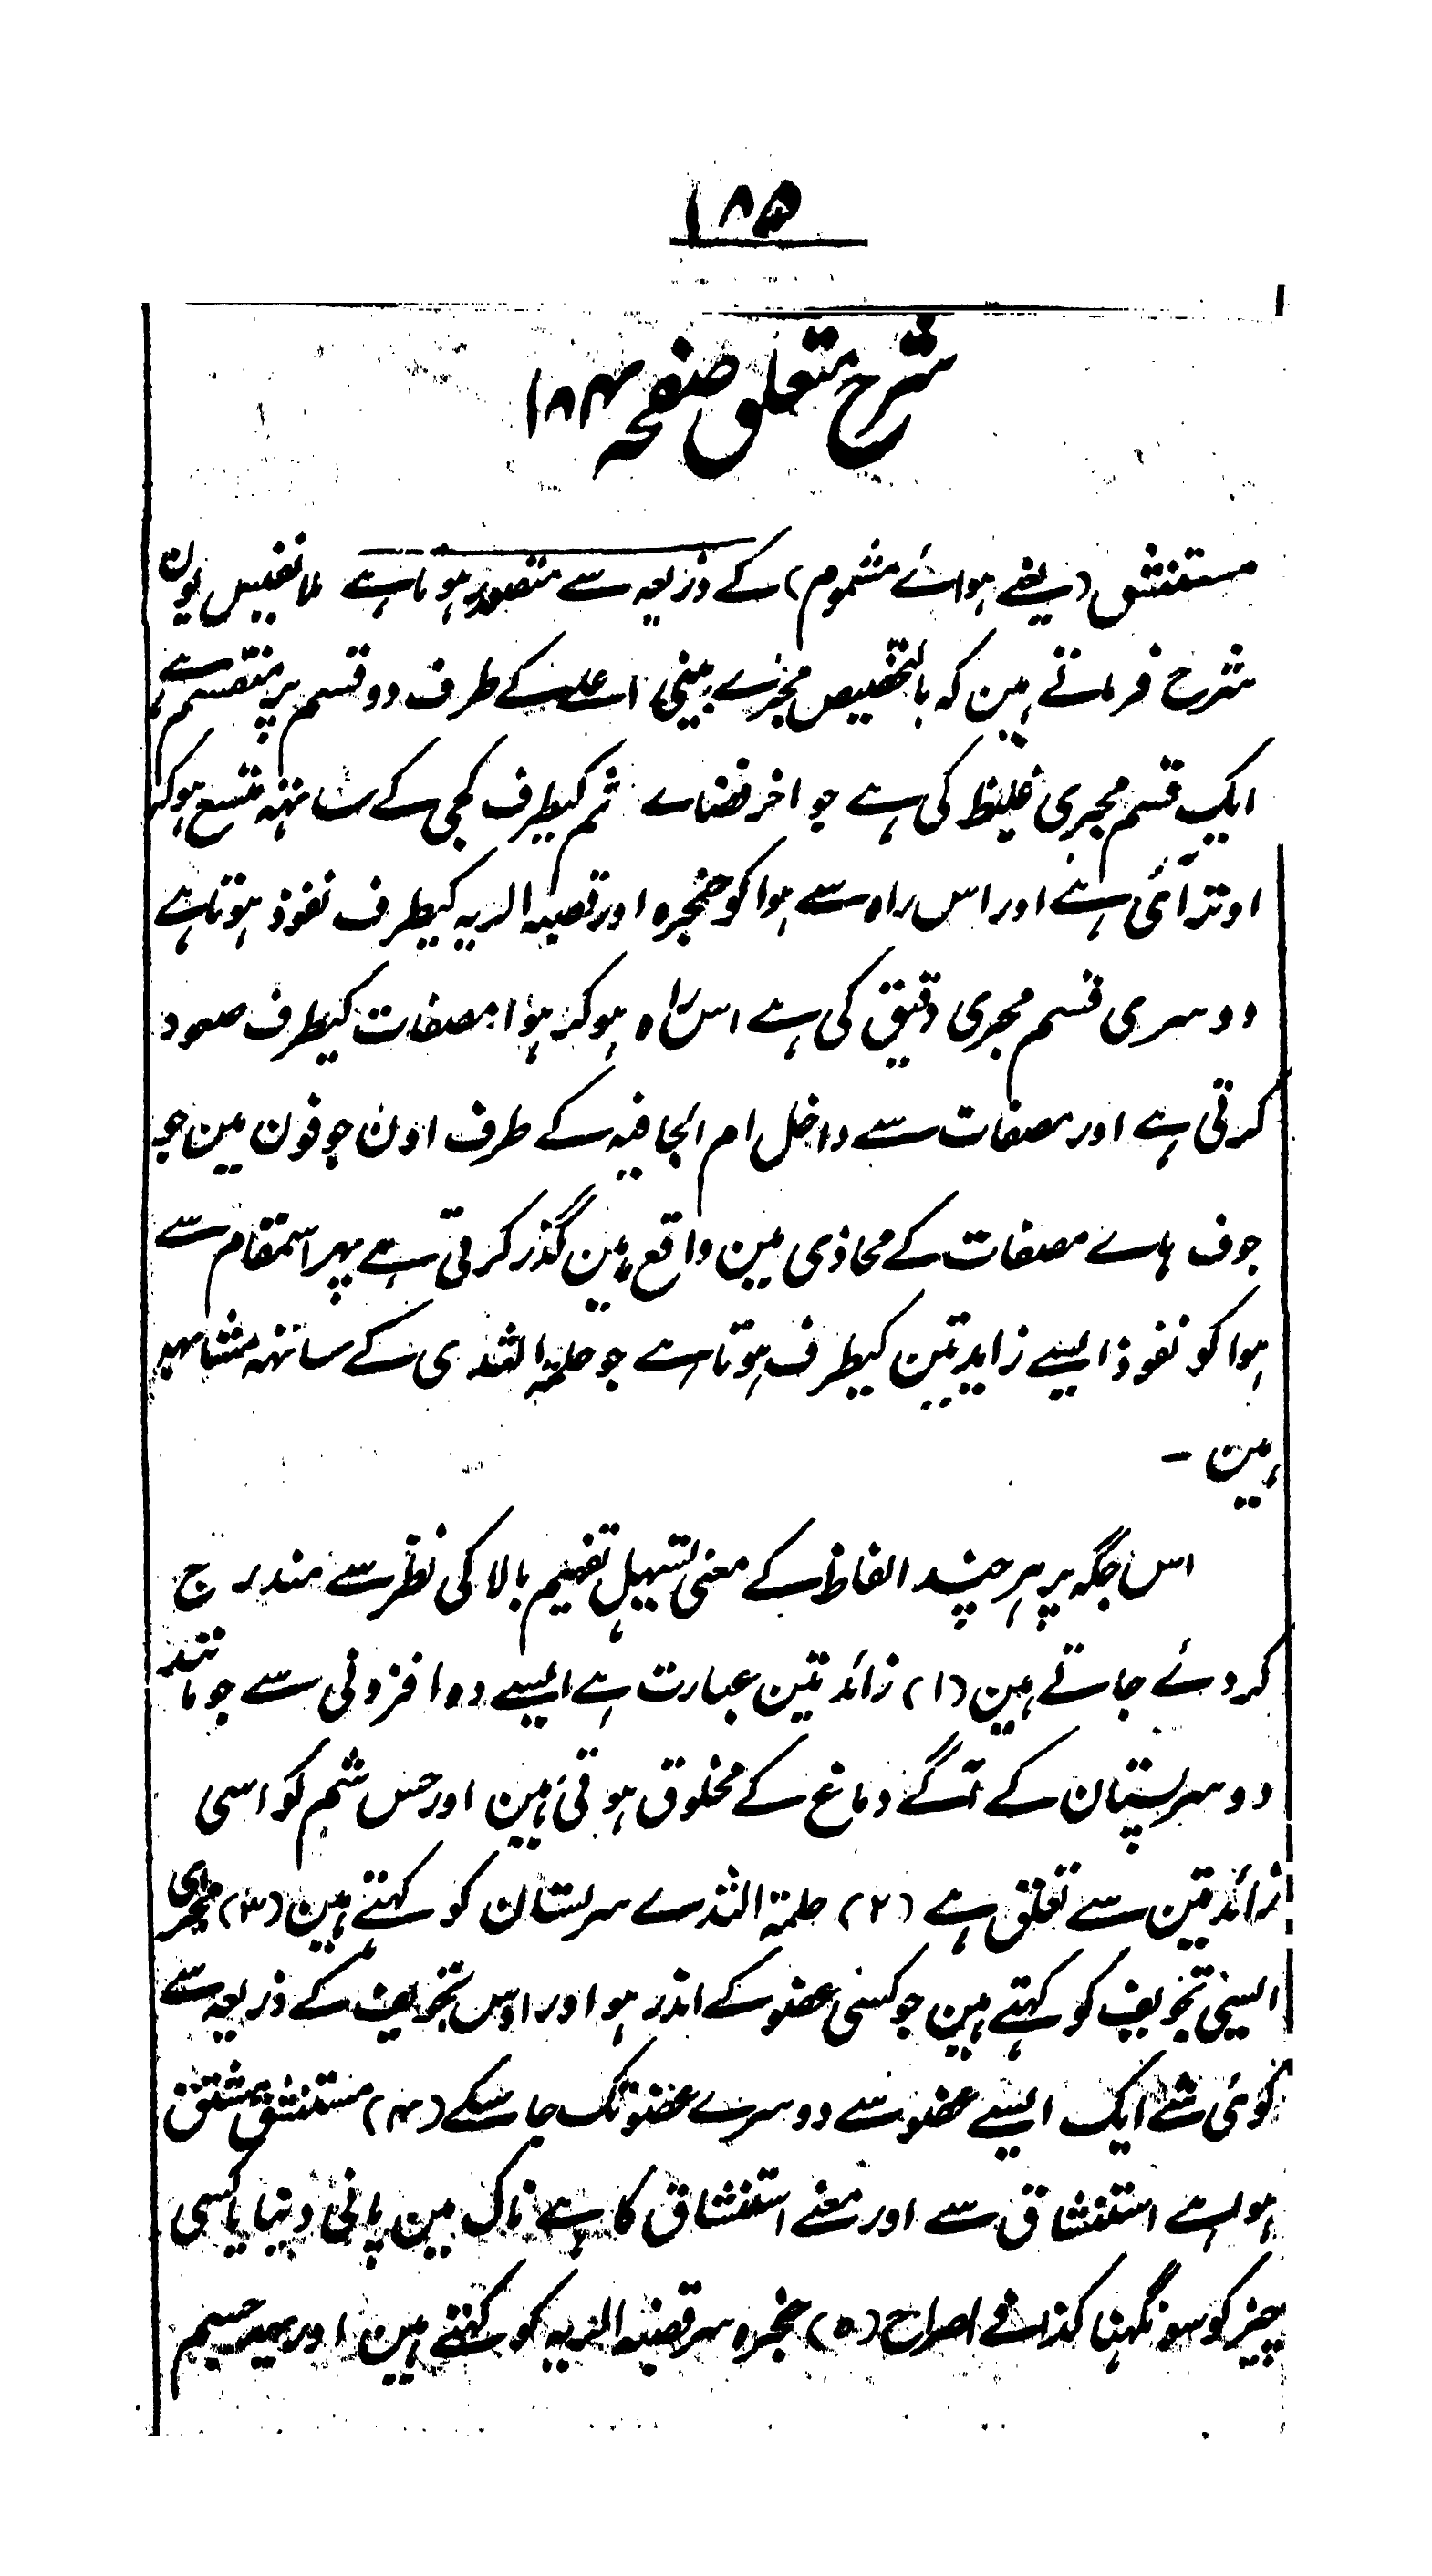 ۱۸۵
شرح متعلق صفحہ ۱۸۴
مستنشق (یعنے ہوائے مشموم) کے ذریعہ سے متصور ہوتا ہے ملا نفیس یون
شرح فرماتے ہین کہ بالتخصیص مجرے بینی اعلے کے طرف دو قسم پر منقسم ہے
ایک قسم مجری غلیظ کی ہے جو اخر فضاے فم کیطرف کجی کے ساتہہ متسع ہوکر
اوتر آئی ہے اور اس راہ سے ہوا کو حنجرہ اور قصبہ الریہ کیطرف نفوذ ہوتا ہے
دوسری قسم مجری دقیق کی ہے اس راہ ہوکر ہوا مصفات کیطرف صعود
کرتی ہے اور مصفات سے داخل ام الجافیہ کے طرف اون جوفون مین جو
جوف ہاے مصفات کے محاذی مین واقع ہین گذر کرتی ہے پہر اسمقام سے
ہوا کو نفوذ ایسے زایدتین کیطرف ہوتا ہے جو حلمۃ الثدی کے ساتہہ مشابہہ
ہین ۔
اس جگہ پر ہر چند الفاظ کے معنی تسہیل تفہیم بالا کی نظر سے مندرج
کر دئے جاتے ہین (۱) زائدتین عبارت ہے ایسے دو افزونی سے جو مانند
دو سرپستان کے آگے دماغ کے مخلوق ہوتی ہین اور حس شم کو اسی
زائدتین سے تعلق ہے (۲) حلمۃ الثدے سرپستان کو کہتے ہین (۳) مجرای
ایسی تجویف کو کہتے ہین جو کسی عضو کے اندر ہو اور اوس تجویف کے ذریعہ سے
کوئی شے ایک ایسے عضو سے دوسرے عضو تک جا سکے (۴) مستنشق مشتق
ہوا ہے استنشاق سے اور معنے استنشاق کا ہے ناک مین پانی دینا یا کسی
چیز کو سونگہنا کذا فے اصراح (۵) حنجرہ سر قصبہ الریہ کو کہتے ہین اور یہہ جسم